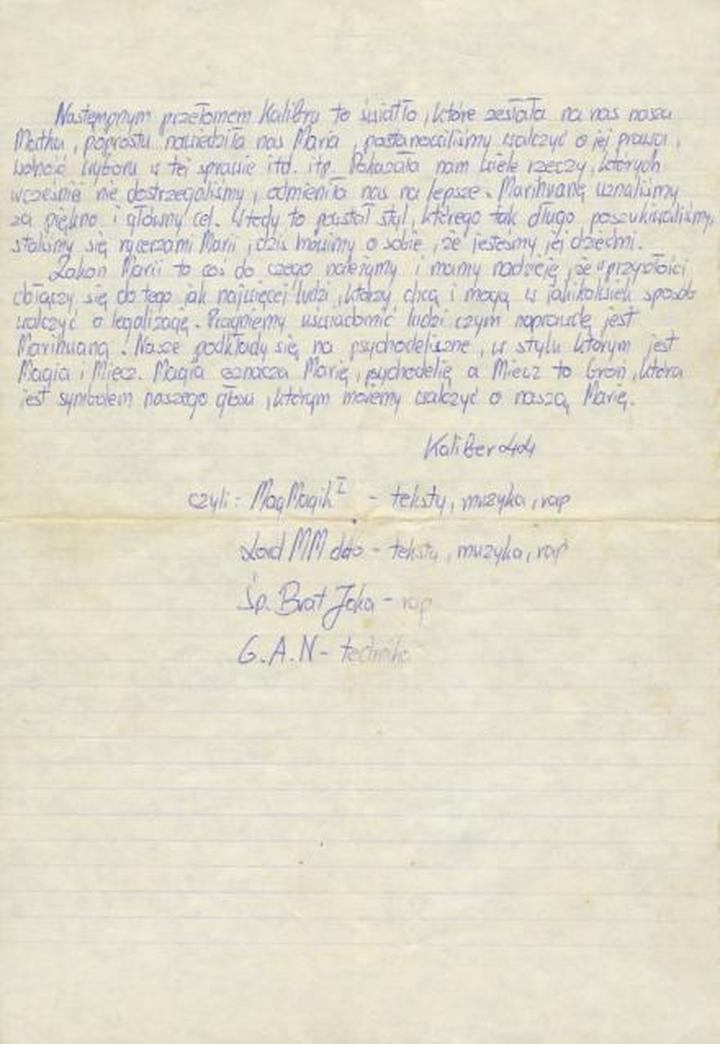 Następnym przełomem Kalibru to światło, które zesłała na nas nasza
Matka, poprostu nawiedziła nas Maria, postanowiliśmy walczyć o jej prawa,
wolność wyboru w tej sprawie itd. itp. Pokazała nam wiele rzeczy, których
wcześniej nie dostrzegaliśmy, odmieniła nas na lepsze. Marihuanę uznaliśmy
za piękno i główny cel. Wtedy to powstał styl, którego tak długo poszukiwaliśmy,
staliśmy się rycerzami Marii, dziś mówimy o sobie, że jesteśmy jej dziećmi.
Zakon Marii to coś do czego należymy i mamy nadzieję, że w przyszłości
dołączy się do tego jak najwięcej ludzi, którzy chcą i mogą w jakikolwiek sposób
walczyć o legalizację. Pragniemy uświadomić ludzi czym naprawdę jest
Marihuana. Nasze podkłady są na psychodeliczne, w stylu którym jest
Magia i Miecz. Magia oznacza Marię, psychodelię a Miecz to broń, która
jest symbolem naszego głosu, którym możemy walczyć o naszą Marię.
Kaliber 44
czyli: MagMagik I - teksty, muzyka, rap
Lord MM dab - teksty, muzyka, rap
Śp. Brat Joka - rap
G.A.N - technik